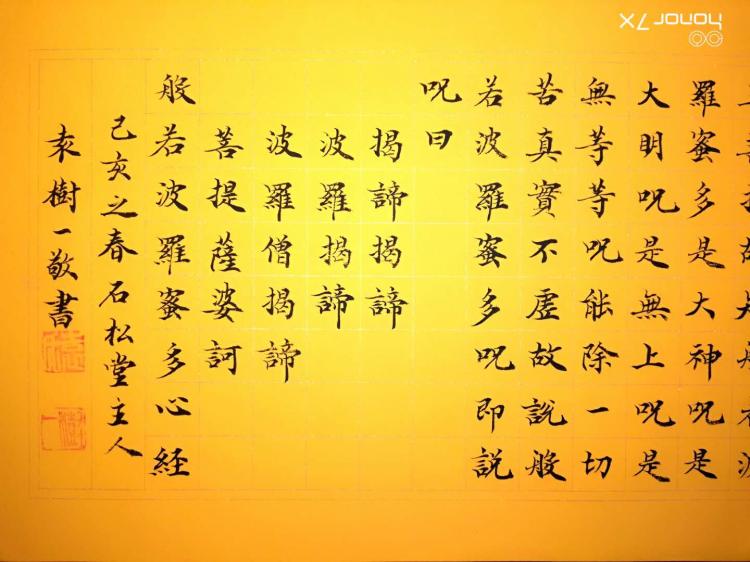 三菩提故知般若波
羅蜜多是大神呪是
大明呪是無上呪是
無等等呪能除一切
苦真實不虛故説般
若波羅蜜多呪即説
呪曰
揭諦揭諦
波羅揭諦
波羅僧揭諦
菩提薩婆訶
般若波羅蜜多心経
己亥之春石松堂主人
袁樹一敬書
honor 7X